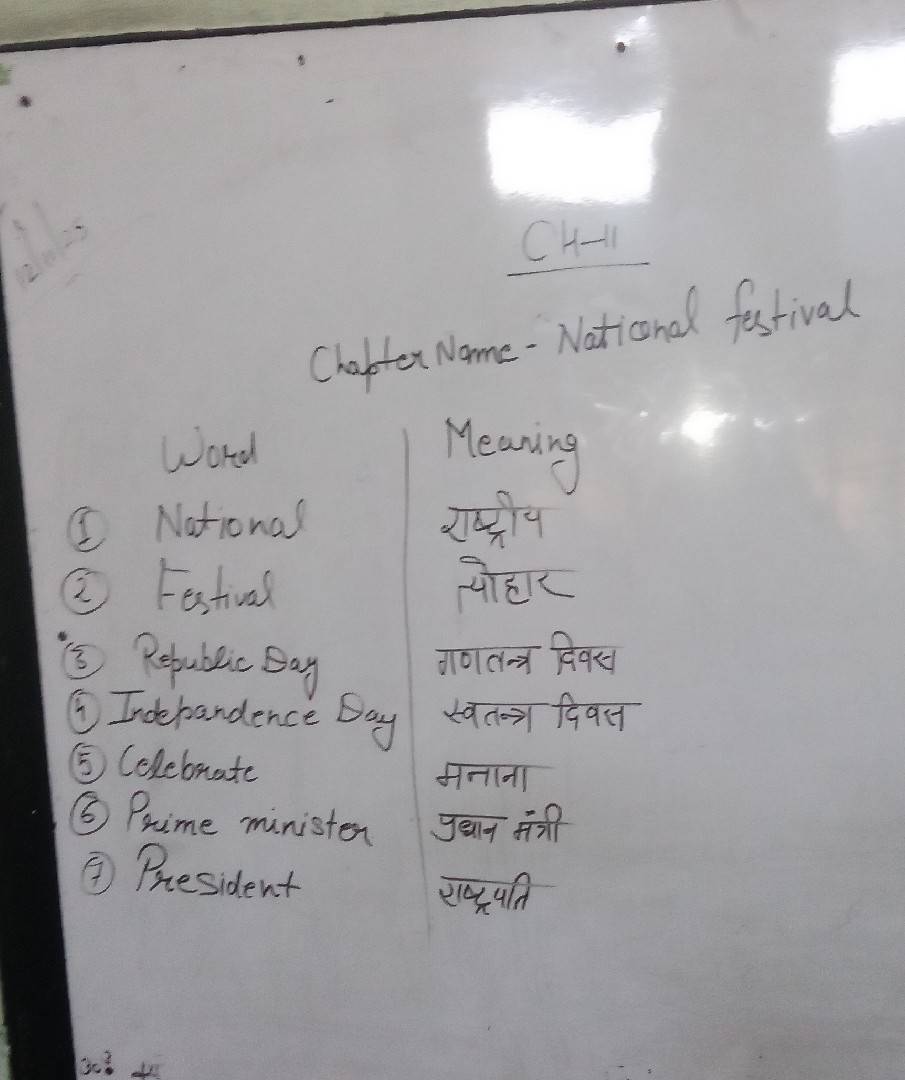 CH-11
Chapter Name - National festival
Word Meaning
① National राष्ट्रीय
② Festival त्योहार
③ Republic Day गणतन्त्र दिवस
④ Indepandence Day स्वतन्त्र दिवस
⑤ Celebrate मनाना
⑥ Prime minister प्रधान मंत्री
⑦ President राष्ट्रपति